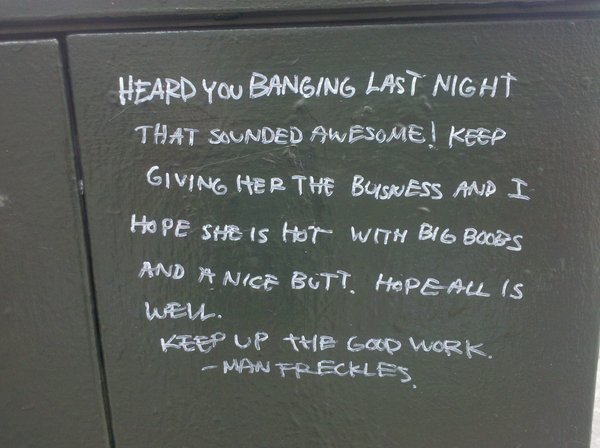 HEARD YOU BANGING LAST NIGHT
THAT SOUNDED AWESOME! KEEP
GIVING HER THE BUISNESS AND I
HOPE SHE IS HOT WITH BIG BOOBS
AND A NICE BUTT. HOPE ALL IS
WELL.
KEEP UP THE GOOD WORK.
-MAN FRECKLES.